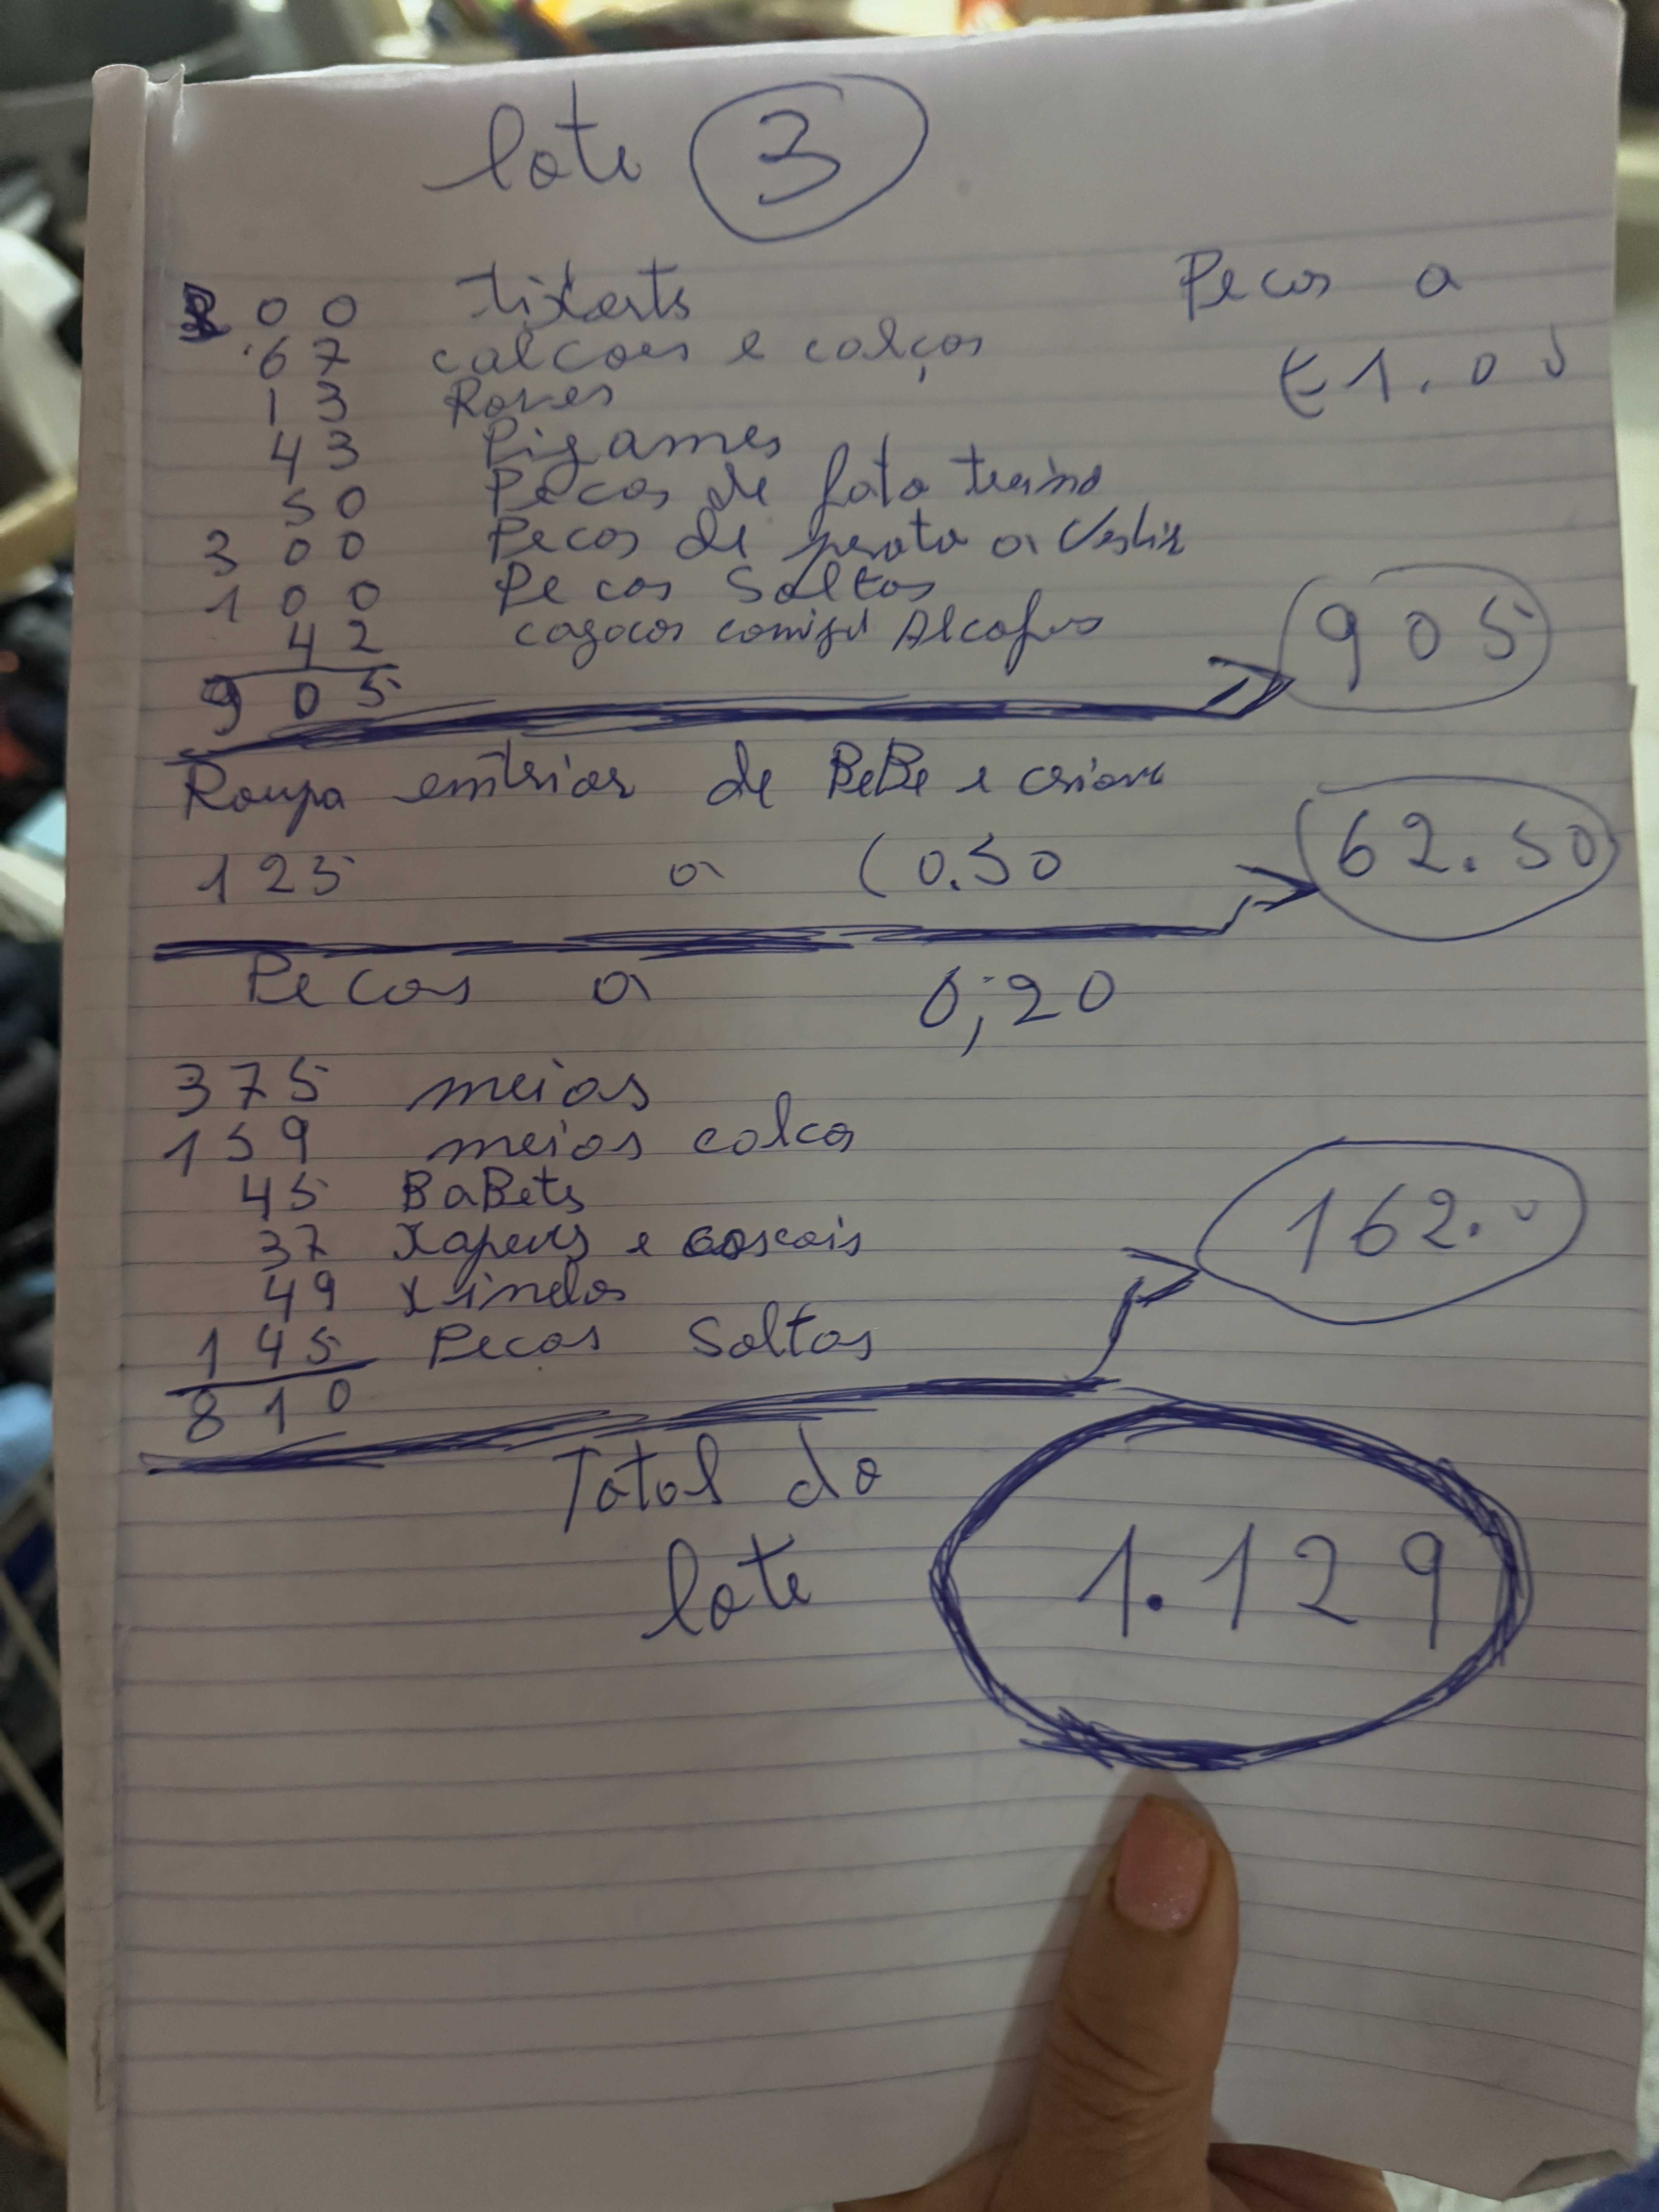 lote 3
Pecas a
€1.00
00 tixerts
67 calcoes e calças
13 Roves
43 Pigames
50 Pecas de fato treino
300 Pecas de peroto a Vestir
100 Pecas Soltas
42 cagacos comisol Alcofas
905
905
Roupa entrior de BeBe e crianc
125 a (0.50
62.50
Pecas a 0,20
375 meias
159 meias calca
45 BaBets
37 Xapeus e cascois
49 Xinelos
145 Pecas Soltas
810
162.0
Total do
lote
1.129